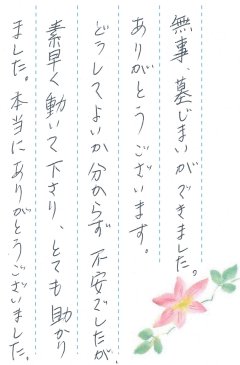 無事、墓じまいができました。
ありがとうございます。
どうしてよいか分からず不安でしたが、
素早く動いて下さり、とても助かり
ました。本当にありがとうございました。